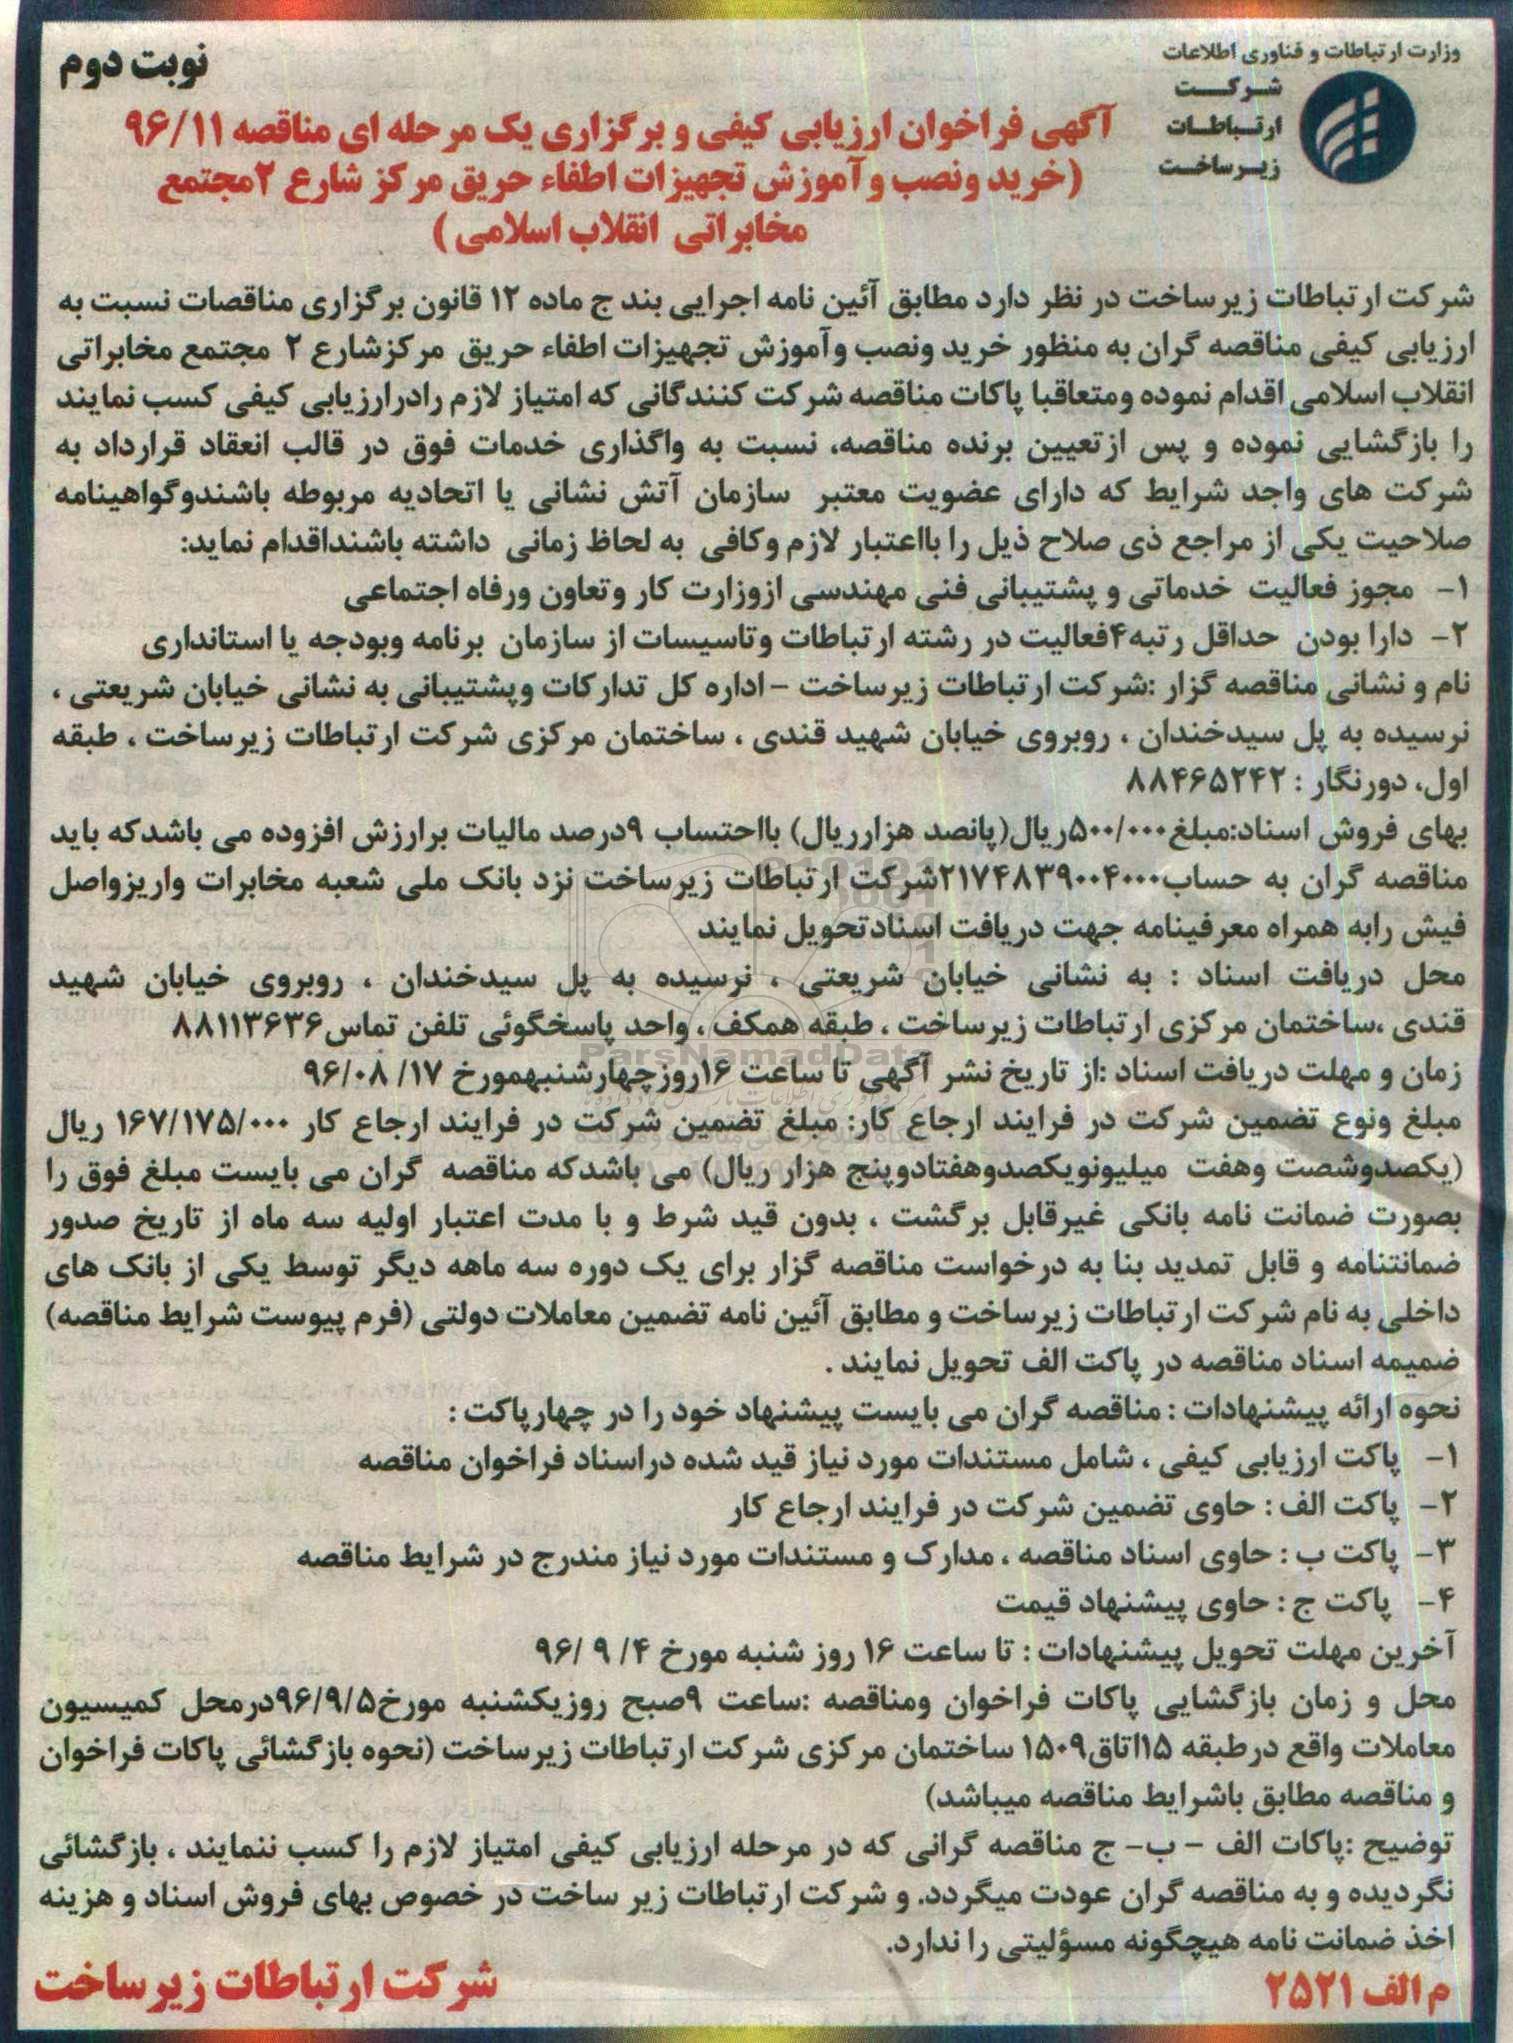 وزارت ارتباطات و فناوری اطلاعات
شرکت
ارتباطات
زیرساخت
نوبت دوم
آگهی فراخوان ارزیابی کیفی و برگزاری یک مرحله ای مناقصه ۹۶/۱۱
(خرید ونصب وآموزش تجهیزات اطفاء حریق مرکز شارع ۲مجتمع
مخابراتی انقلاب اسلامی )
شرکت ارتباطات زیرساخت در نظر دارد مطابق آئین نامه اجرایی بند ج ماده ۱۲ قانون برگزاری مناقصات نسبت به
ارزیابی کیفی مناقصه گران به منظور خرید ونصب وآموزش تجهیزات اطفاء حریق مرکزشارع ۲ مجتمع مخابراتی
انقلاب اسلامی اقدام نموده ومتعاقبا پاکات مناقصه شرکت کنندگانی که امتیاز لازم رادرارزیابی کیفی کسب نمایند
را بازگشایی نموده و پس ازتعیین برنده مناقصه، نسبت به واگذاری خدمات فوق در قالب انعقاد قرارداد به
شرکت های واجد شرایط که دارای عضویت معتبر سازمان آتش نشانی یا اتحادیه مربوطه باشندوگواهینامه
صلاحیت یکی از مراجع ذی صلاح ذیل را بااعتبار لازم وکافی به لحاظ زمانی داشته باشنداقدام نماید:
۱- مجوز فعالیت خدماتی و پشتیبانی فنی مهندسی ازوزارت کار وتعاون ورفاه اجتماعی
۲- دارا بودن حداقل رتبه۴فعالیت در رشته ارتباطات وتاسیسات از سازمان برنامه وبودجه یا استانداری
نام و نشانی مناقصه گزار :شرکت ارتباطات زیرساخت – اداره کل تدارکات وپشتیبانی به نشانی خیابان شریعتی ،
نرسیده به پل سیدخندان ، روبروی خیابان شهید قندی ، ساختمان مرکزی شرکت ارتباطات زیرساخت ، طبقه
اول، دورنگار : ۸۸۴۶۵۲۴۲
بهای فروش اسناد:مبلغ۵۰۰/۰۰۰ریال(پانصد هزارریال) بااحتساب ۹درصد مالیات برارزش افزوده می باشدکه باید
مناقصه گران به حساب۲۱۷۴۸۳۹۰۰۴۰۰۰شرکت ارتباطات زیرساخت نزد بانک ملی شعبه مخابرات واریزواصل
فیش رابه همراه معرفینامه جهت دریافت اسنادتحویل نمایند
محل دریافت اسناد : به نشانی خیابان شریعتی ، نرسیده به پل سیدخندان ، روبروی خیابان شهید
قندی ،ساختمان مرکزی ارتباطات زیرساخت ، طبقه همکف ، واحد پاسخگوئی تلفن تماس۸۸۱۱۳۶۳۶
ParsNamadData
زمان و مهلت دریافت اسناد :از تاریخ نشر آگهی تا ساعت ۱۶روزچهارشنبهمورخ ۱۷/ ۹۶/۰۸
مبلغ ونوع تضمین شرکت در فرایند ارجاع کار: مبلغ تضمین شرکت در فرایند ارجاع کار ۱۶۷/۱۷۵/۰۰۰ ریال
(یکصدوشصت وهفت میلیونویکصدوهفتادوپنج هزار ریال) می باشدکه مناقصه گران می بایست مبلغ فوق را
بصورت ضمانت نامه بانکی غیرقابل برگشت ، بدون قید شرط و با مدت اعتبار اولیه سه ماه از تاریخ صدور
ضمانتنامه و قابل تمدید بنا به درخواست مناقصه گزار برای یک دوره سه ماهه دیگر توسط یکی از بانک های
داخلی به نام شرکت ارتباطات زیرساخت و مطابق آئین نامه تضمین معاملات دولتی (فرم پیوست شرایط مناقصه)
ضمیمه اسناد مناقصه در پاکت الف تحویل نمایند .
نحوه ارائه پیشنهادات : مناقصه گران می بایست پیشنهاد خود را در چهارپاکت :
۱- پاکت ارزیابی کیفی ، شامل مستندات مورد نیاز قید شده دراسناد فراخوان مناقصه
۲- پاکت الف : حاوی تضمین شرکت در فرایند ارجاع کار
۳- پاکت ب : حاوی اسناد مناقصه ، مدارک و مستندات مورد نیاز مندرج در شرایط مناقصه
۴- پاکت ج : حاوی پیشنهاد قیمت
آخرین مهلت تحویل پیشنهادات : تا ساعت ۱۶ روز شنبه مورخ ۴/ ۹ /۹۶
محل و زمان بازگشایی پاکات فراخوان ومناقصه :ساعت ۹صبح روزیکشنبه مورخ۹۶/۹/۵درمحل کمیسیون
معاملات واقع درطبقه ۱۵اتاق۱۵۰۹ ساختمان مرکزی شرکت ارتباطات زیرساخت (نحوه بازگشائی پاکات فراخوان
و مناقصه مطابق باشرایط مناقصه میباشد)
توضیح :پاکات الف – ب- ج مناقصه گرانی که در مرحله ارزیابی کیفی امتیاز لازم را کسب ننمایند ، بازگشائی
نگردیده و به مناقصه گران عودت میگردد. و شرکت ارتباطات زیر ساخت در خصوص بهای فروش اسناد و هزینه
اخذ ضمانت نامه هیچگونه مسؤلیتی را ندارد.
م الف ۲۵۲۱
شرکت ارتباطات زیرساخت